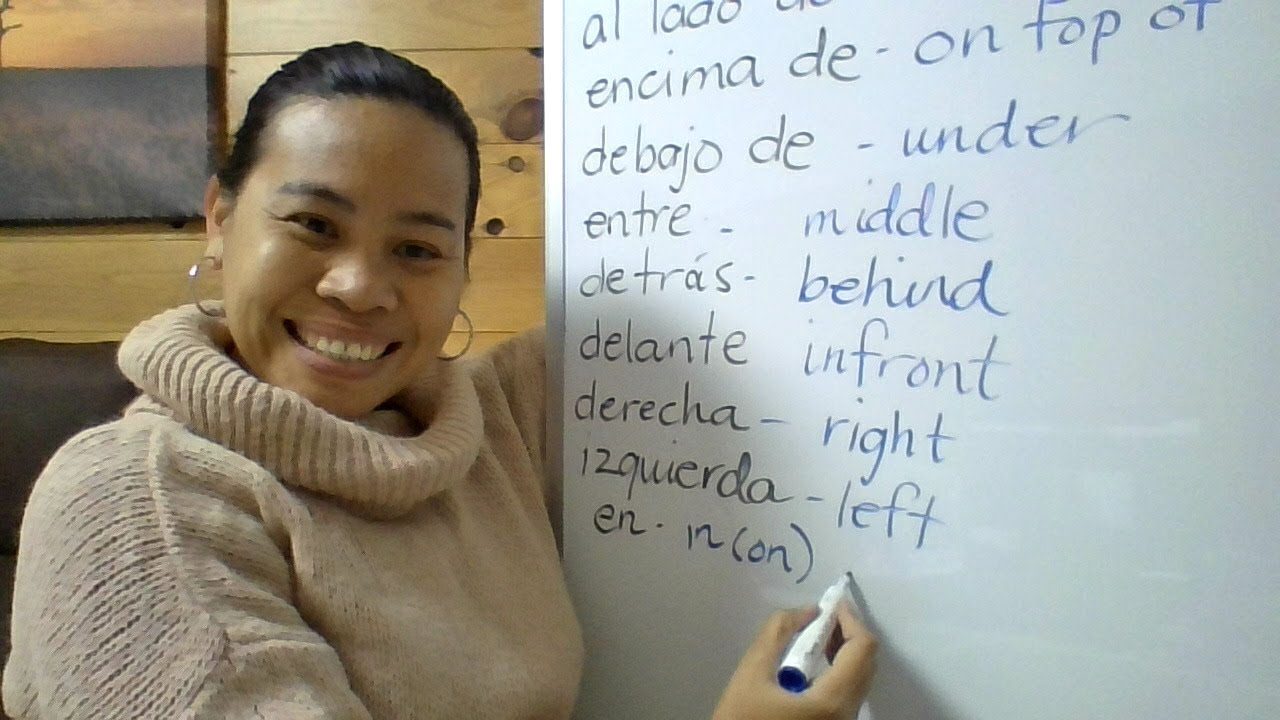 al lado de
encima de - on top of
debajo de - under
entre - middle
detrás - behind
delante infront
derecha - right
izquierda - left
en - in (on)